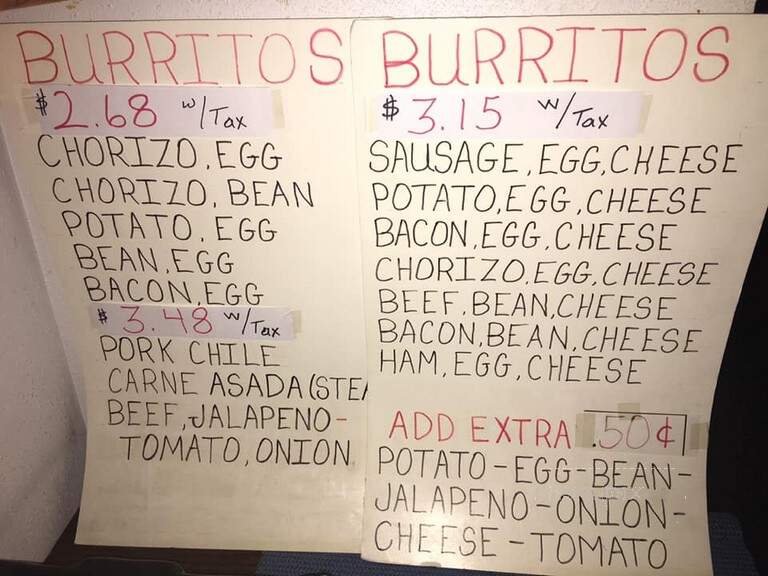 BURRITOS
$2.68 w/Tax
CHORIZO, EGG
CHORIZO, BEAN
POTATO, EGG
BEAN, EGG
BACON, EGG
$3.48 w/Tax
PORK CHILE
CARNE ASADA (STEA
BEEF, JALAPENO-
TOMATO, ONION
BURRITOS
$3.15 w/Tax
SAUSAGE, EGG, CHEESE
POTATO, EGG, CHEESE
BACON, EGG, CHEESE
CHORIZO, EGG, CHEESE
BEEF, BEAN, CHEESE
BACON, BEAN, CHEESE
HAM, EGG, CHEESE
ADD EXTRA .50¢
POTATO-EGG-BEAN-
JALAPENO-ONION-
CHEESE-TOMATO